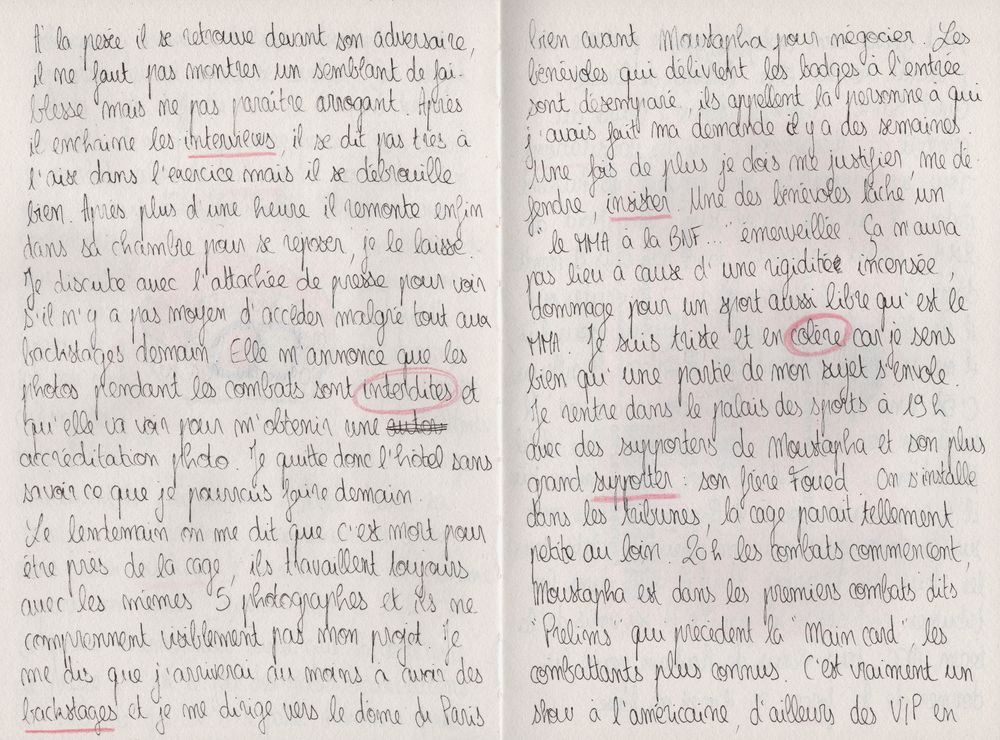 A la pesée il se retrouve devant son adversaire,
il ne faut pas montrer un semblant de fai-
blesse mais ne pas paraître arrogant. Après
il enchaine les interviews, il se dit pas très à
l'aise dans l'exercice mais il se débrouille
bien. Après plus d'une heure il remonte enfin
dans sa chambre pour se reposer, je le laisse.
Je discute avec l'attachée de presse pour voir
s'il n'y a pas moyen d'accéder malgré tout aux
backstages demain. Elle m'annonce que les
photos pendant les combats sont interdites et
qu'elle va voir pour m'obtenir une autor
accréditation photo. Je quitte donc l'hôtel sans
savoir ce que je pourrais faire demain.
Le lendemain on me dit que c'est mort pour
être près de la cage, ils travaillent toujours
avec les mêmes 5 photographes et ils ne
comprennent visiblement pas mon projet. Je
me dis que j'arriverai au moins à avoir des
backstages et je me dirige vers le dôme de Paris
bien avant Moustapha pour négocier. Les
bénévoles qui délivrent les badges à l'entrée
sont désemparé, ils appellent la personne à qui
j'avais fait ma demande il y a des semaines.
Une fois de plus je dois me justifier, me dé-
fendre, insister. Une des bénévoles lâche un
"le MMA à la BNF..." émerveillée. Ça n'aura
pas lieu à cause d'une rigidité incensée,
dommage pour un sport aussi libre qu'est le
MMA. Je suis triste et en colère car je sens
bien qu'une partie de mon sujet s'envole.
Je rentre dans le palais des sports à 19h
avec des supporters de Moustapha et son plus
grand supporter : son frère Foued. On s'installe
dans les tribunes, la cage parait tellement
petite au loin. 20h les combats commencent,
Moustapha est dans les premiers combats dits
"Prelims" qui précèdent la "Main card", les
combattants plus connus. C'est vraiment un
show à l'américaine, d'ailleurs des VIP en